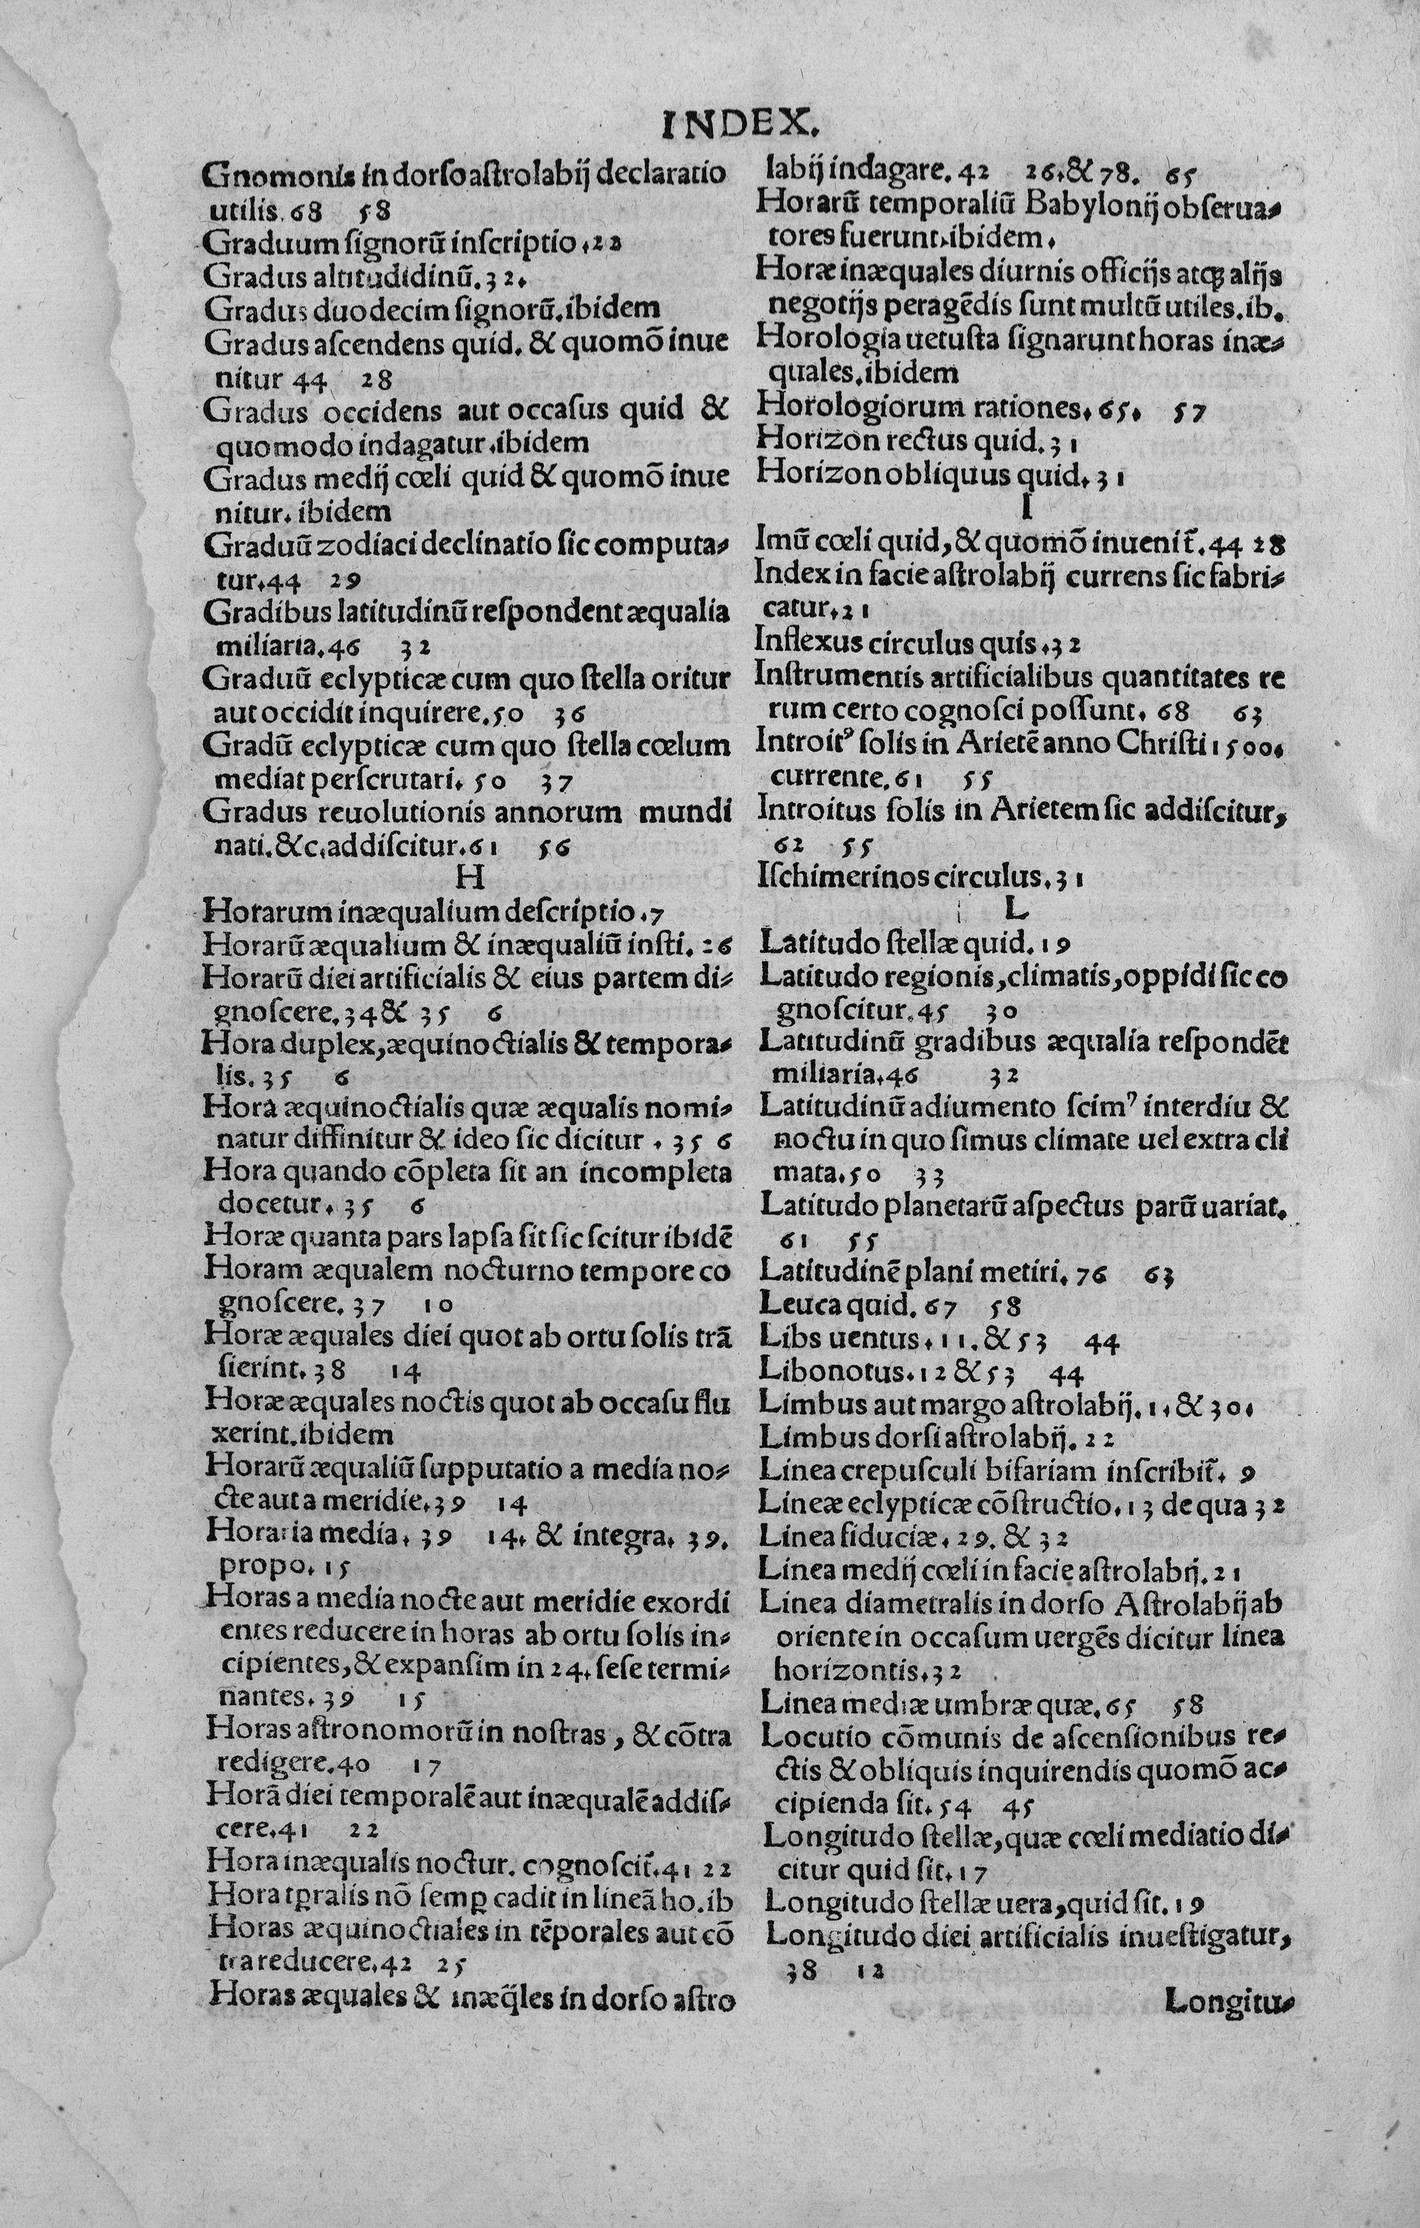 INDEX.
Gnomonis in dorso astrolabij declaratio
utilis. 68 58
Graduum signorũ inscriptio. 22
Gradus altitudidinũ. 32.
Gradus duodecim signorũ. ibidem
Gradus ascendens quid. & quomõ inue
nitur 44 28
Gradus occidens aut occasus quid &
quomodo indagatur. ibidem
Gradus medij cœli quid & quomõ inue
nitur. ibidem
Graduũ zodiaci declinatio sic computa-
tur. 44 29
Gradibus latitudinũ respondent æqualia
miliaria. 46 32
Graduũ eclypticæ cum quo stella oritur
aut occidit inquirere. 50 36
Gradũ eclypticæ cum quo stella cœlum
mediat perscrutari. 50 37
Gradus reuolutionis annorum mundi
nati. &c. addiscitur. 61 56
H
Horarum inæqualium descriptio. 7
Horarũ æqualium & inæqualiũ insti. 26
Horarũ diei artificialis & eius partem di-
gnoscere. 34 & 35 6
Hora duplex, æquinoctialis & tempora-
lis. 35 6
Hora æquinoctialis quæ æqualis nomi-
natur diffinitur & ideo sic dicitur . 35 6
Hora quando cõpleta sit an incompleta
docetur. 35 6
Horæ quanta pars lapsa sit sic scitur ibidẽ
Horam æqualem nocturno tempore co
gnoscere. 37 10
Horæ æquales diei quot ab ortu solis trã
sierint. 38 14
Horæ æquales noctis quot ab occasu flu
xerint. ibidem
Horarũ æqualiũ supputatio a media no-
cte aut a meridie. 39 14
Horaria media. 39 14. & integra. 39.
propo. 15
Horas a media nocte aut meridie exordi
entes reducere in horas ab ortu solis in-
cipientes, & expansim in 24. sese termi-
nantes. 39 15
Horas astronomorũ in nostras , & cõtra
redigere. 40 17
Horã diei temporalẽ aut inæqualẽ addis-
cere. 41 22
Hora inæqualis noctur. cognoscit᷑. 41 22
Hora tꝑralis nõ semꝑ cadit in lineã ho. ib
Horas æquinoctiales in tẽporales aut cõ
tra reducere. 42 25
Horas æquales & inæq̃les in dorso astro
labij indagare. 42 26. & 78. 65
Horarũ temporaliũ Babylonij obserua-
tores fuerunt. ibidem.
Horæ inæquales diurnis officijs atq; alijs
negotijs peragẽdis sunt multũ utiles. ib.
Horologia uetusta signarunt horas inæ-
quales. ibidem
Horologiorum rationes. 65. 57
Horizon rectus quid. 31
Horizon obliquus quid. 31
I
Imũ cœli quid, & quomõ inuenit᷑. 44 28
Index in facie astrolabij currens sic fabri-
catur. 21
Inflexus circulus quis. 32
Instrumentis artificialibus quantitates re
rum certo cognosci possunt. 68 63
Introitꝰ solis in Arietẽ anno Christi 1500.
currente. 61 55
Introitus solis in Arietem sic addiscitur,
62 55
Ischimerinos circulus. 31
L
Latitudo stellæ quid. 19
Latitudo regionis, climatis, oppidi sic co
gnoscitur. 45 30
Latitudinũ gradibus æqualia respondẽt
miliaria. 46 32
Latitudinũ adiumento scimꝰ interdiu &
noctu in quo simus climate uel extra cli
mata. 50 33
Latitudo planetarũ aspectus parũ uariat.
61 55
Latitudinẽ plani metiri. 76 63
Leuca quid. 67 58
Libs uentus. 11. & 53 44
Libonotus. 12 & 53 44
Limbus aut margo astrolabij. 1. & 30.
Limbus dorsi astrolabij. 22
Linea crepusculi bifariam inscribit᷑. 9
Lineæ eclypticæ cõstructio. 13 de qua 32
Linea fiduciæ. 29. & 32
Linea medij cœli in facie astrolabij. 21
Linea diametralis in dorso Astrolabij ab
oriente in occasum uergẽs dicitur linea
horizontis. 32
Linea mediæ umbræ quæ. 65 58
Locutio cõmunis de ascensionibus re-
ctis & obliquis inquirendis quomõ ac-
cipienda sit. 54 45
Longitudo stellæ, quæ cœli mediatio di-
citur quid sit. 17
Longitudo stellæ uera, quid sit. 19
Longitudo diei artificialis inuestigatur,
38 12
Longitu-